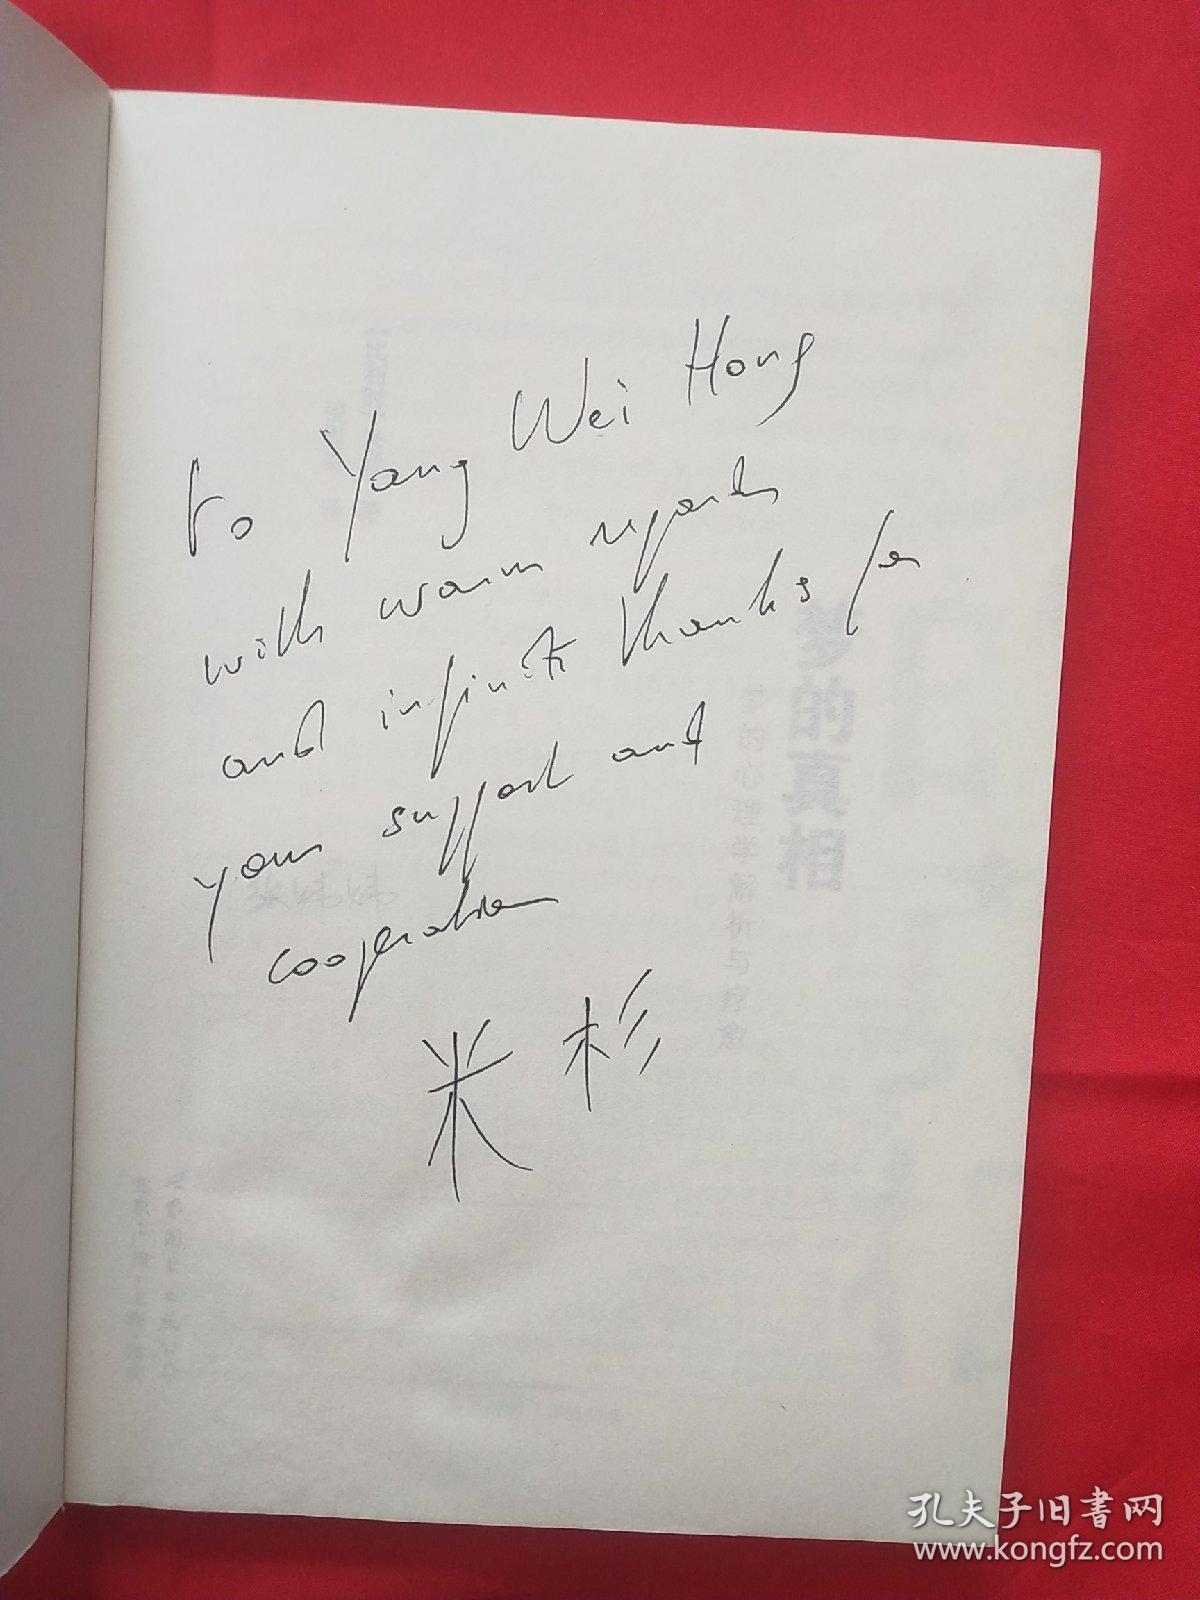 to Yang Wei Hong
with warm regards
and infinite thanks for
your support and
cooperation
米杉
梦的真相
梦的心理学解析与疗愈
张沛沛
孔夫子旧书网
www.kongfz.com